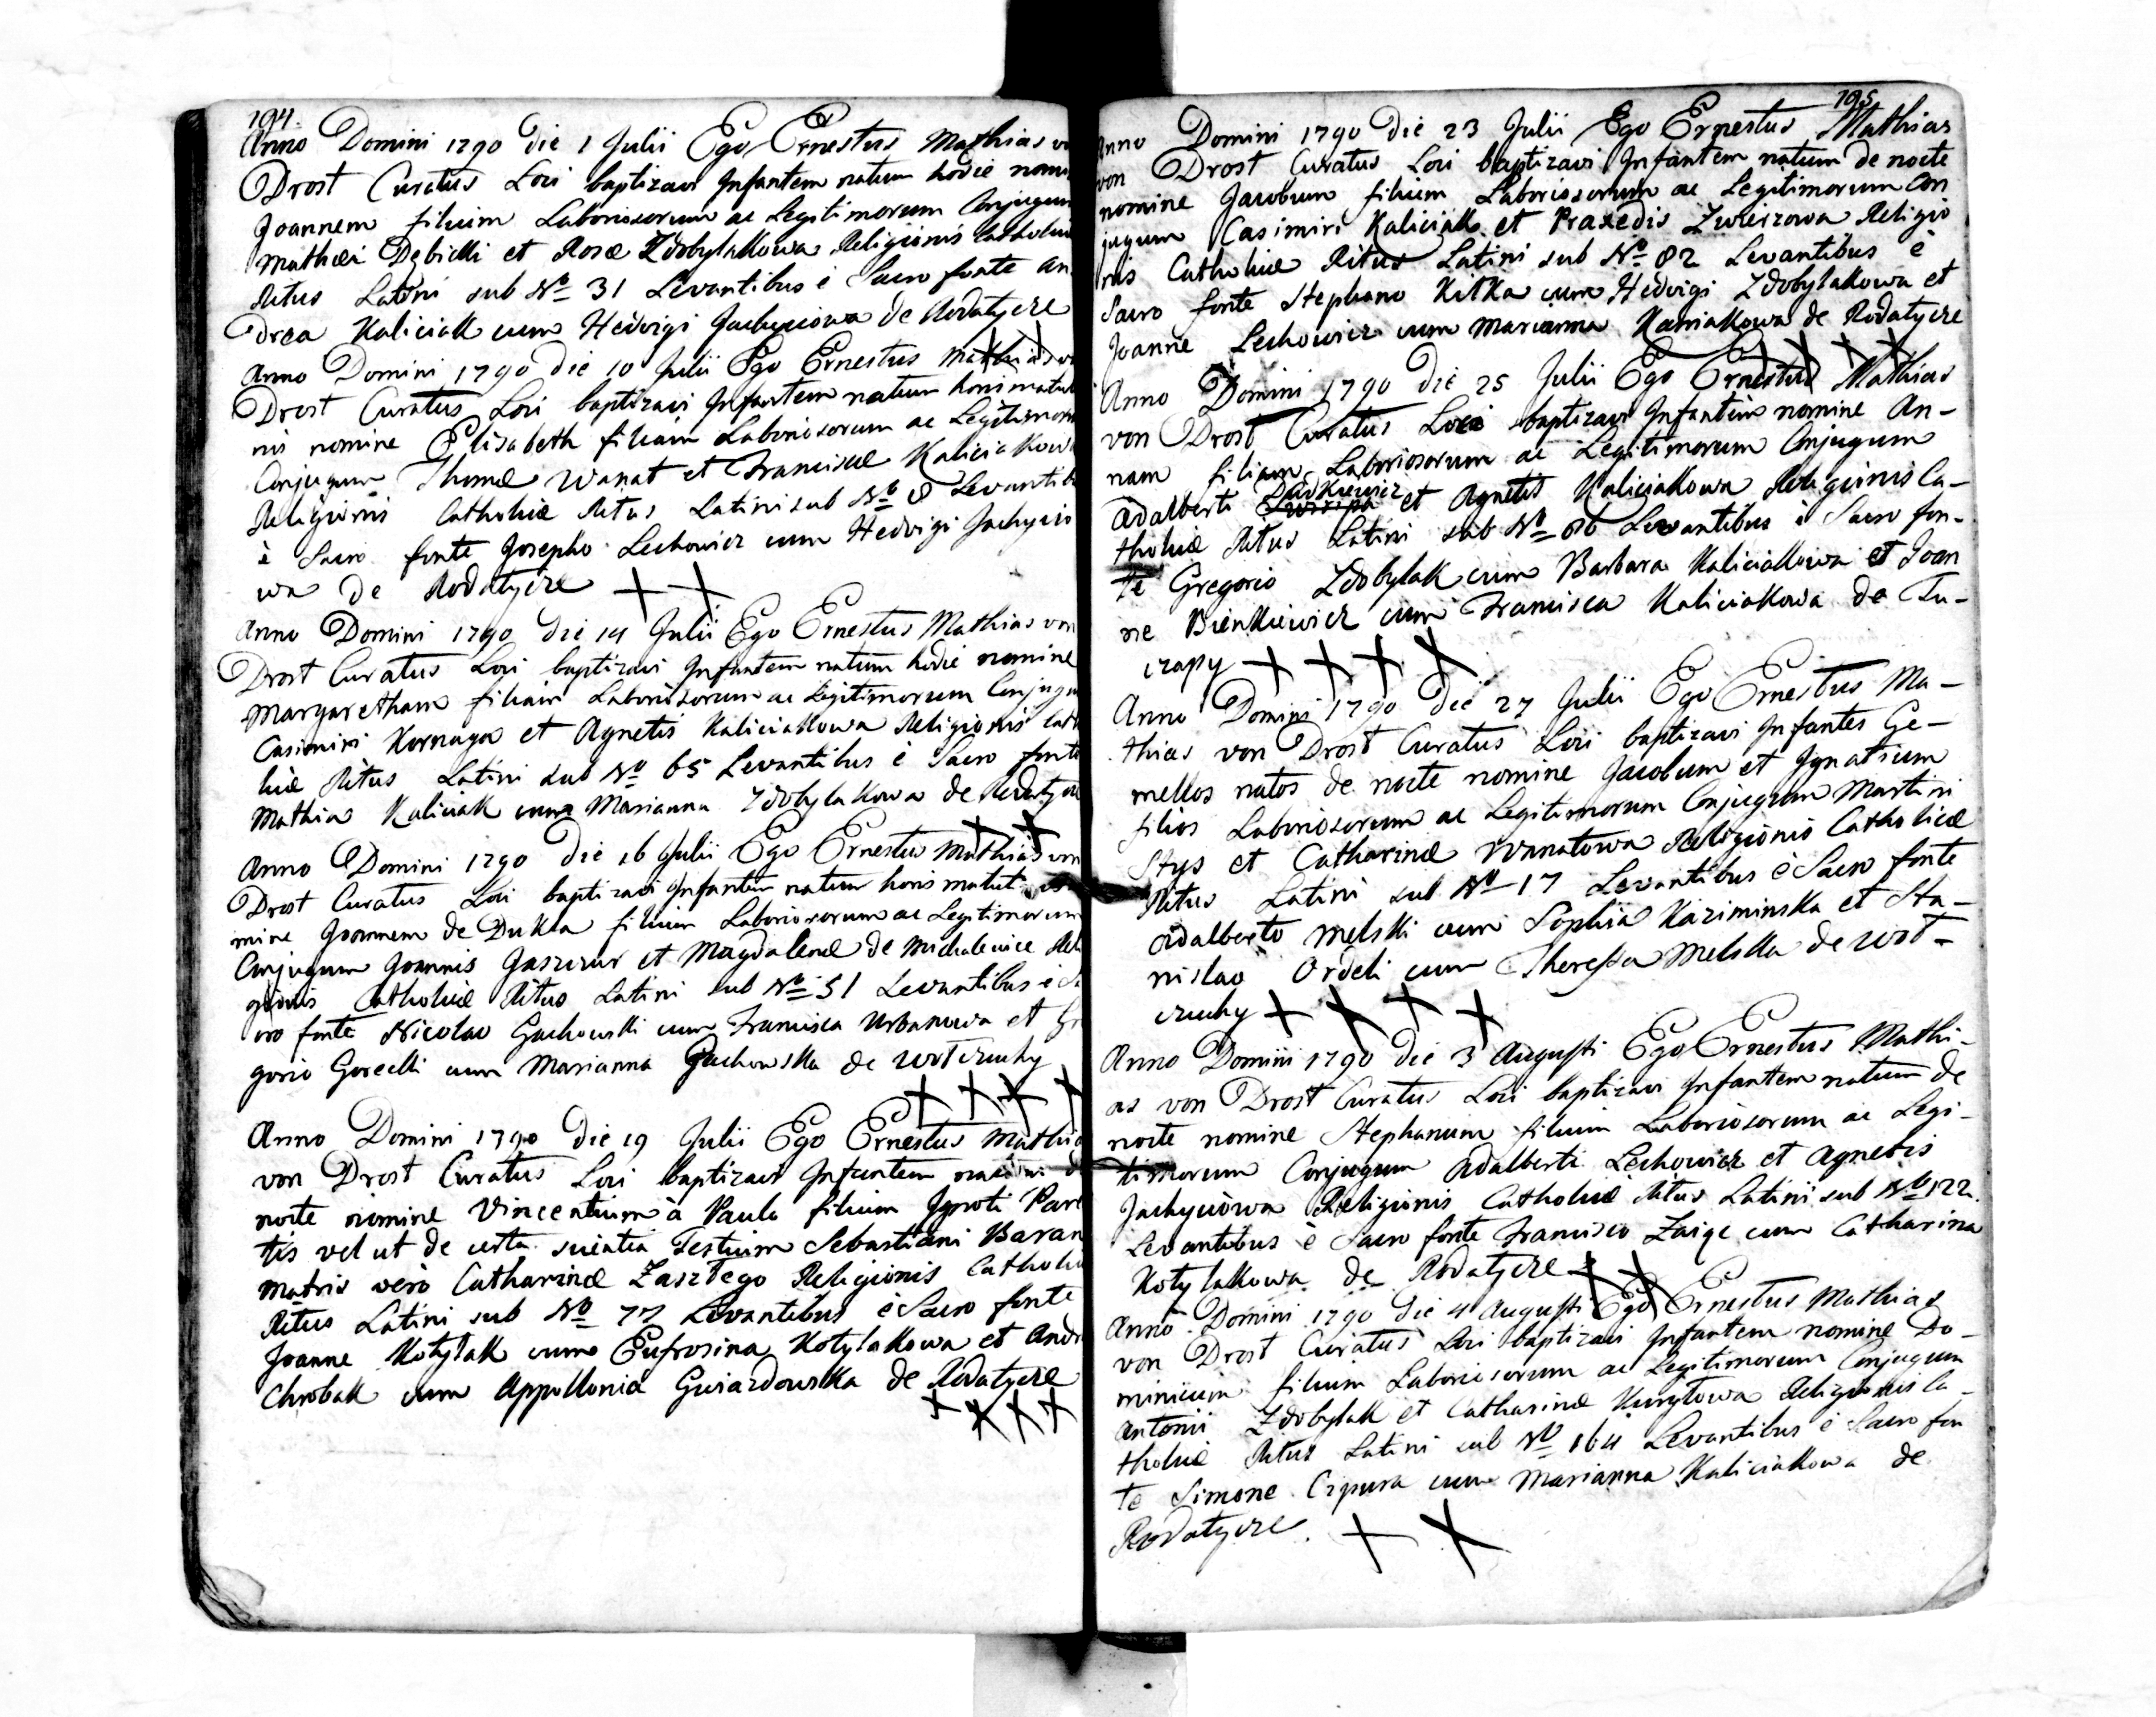 194.
Anno Domini 1790 die 1 Julii Ego Ernestus Mathias
Drost Curatus Loci baptizavi Infantem natum hodie nomi
Joannem filium Laboriosorum ac Legitimorum Conjugum
Mathæi Dębicki et Rosæ Zdobylakowa Religionis Catholicæ
Ritus Latini sub No 31 Levantibus è Sacro fonte An
drea Kaliciak cum Hedvigi Jachyciowa de Rodatycze
Anno Domini 1790 die 10 Julii Ego Ernestus Mathias
Drost Curatus Loci baptizavi Infantem natum horis matuti
nis nomine Elisabeth filiam Laboriosorum ac Legitimor
Conjugum Thomæ Wanat et Franciscæ Kaliciakow
Religionis Catholicæ Ritus Latini sub No 8 Levantib
è Sacro fonte Josepho Lechowicz cum Hedvigi Jachycio
wa de Rodatycze + +
Anno Domini 1790 die 14 Julii Ego Ernestus Mathias von
Drost Curatus Loci baptizavi Infantem natum hodie nomine
Margaretham filiam Laboriosorum ac Legitimorum Conjugu
Casimiri Kornaga et Agnetis Kaliciakowa Religionis Catho
licæ Ritus Latini sub No 65 Levantibus è Sacro fonte
Mathia Kaliciak cum Marianna Zdobylakowa de Rodatycze
+ +
Anno Domini 1790 die 16 Julii Ego Ernestus Mathias von
Drost Curatus Loci baptizavi Infantem natum horis matut
mine Joannem de Dukla filium Laboriosorum ac Legitimorum
Conjugum Joannis Gaszczur et Magdalenæ de Michalewice Reli
gionis Catholicæ Ritus Latini sub No 51 Levantibus è Sa
cro fonte Nicolao Gachowski cum Francisca Urbanowa et Gre
gorio Gorecki cum Marianna Gachowska de Wotczuchy
+ + + +
Anno Domini 1790 die 19 Julii Ego Ernestus Mathia
von Drost Curatus Loci baptizavi Infantem natum d
nocte nomine Vincentium à Paulo filium Ignoti Paren
tis vel ut de certa scientia Testium Sebastiani Baran
Matris verò Catharinæ Zasztego Religionis Catholi
Ritus Latini sub No 77 Levantibus è Sacro fonte
Joanne Kotylak cum Eufrosina Kotylakowa et Andr
Chrobak cum Appollonia Gwiazdowska de Rodatycze
+ + + +
195
Anno Domini 1790 die 23 Julii Ego Ernestus Mathias
von Drost Curatus Loci baptizavi Infantem natum de nocte
nomine Jacobum filium Laboriosorum ac Legitimorum Con
jugum Casimiri Kaliciak et Praxedis Zwierzowa Religio
nis Catholicæ Ritus Latini sub No 82 Levantibus è
Sacro fonte Stephano Kitka cum Hedvigi Zdobylakowa et
Joanne Lechowicz cum Marianna Kaniakowa de Rodatycze
+ + + +
Anno Domini 1790 die 25 Julii Ego Ernestus Mathias
von Drost Curatus Loci baptizavi Infantem nomine An-
nam filiam Laboriosorum ac Legitimorum Conjugum
Adalberti et Agnetis Kaliciakowa Religionis Ca-
tholicæ Ritus Latini sub No 86 Levantibus è Sacro fon-
te Gregorio Zdobylak cum Barbara Kaliciakowa et Joan
ne Bienkiewicz cum Francisca Kaliciakowa de Tu-
czapy + + + +
Anno Domini 1790 die 27 Julii Ego Ernestus Ma-
thias von Drost Curatus Loci baptizavi Infantes Ge-
mellos natos de nocte nomine Jacobum et Ignatium
filios Laboriosorum ac Legitimorum Conjugum Martini
Stys et Catharinæ Wanatowa Religionis Catholicæ
Ritus Latini sub No 17 Levantibus è Sacro fonte
Adalberto Melski cum Sophia Kaziminska et Sta-
nislao Ordeli cum Theressa Melska de Wot-
czuchy + + + +
Anno Domini 1790 die 3 Augusti Ego Ernestus Mathi-
as von Drost Curatus Loci baptizavi Infantem natum de
nocte nomine Stephanum filium Laboriosorum ac Legi-
timorum Conjugum Adalberti Lechowicz et Agnetis
Jachyciowa Religionis Catholicæ Ritus Latini sub No 122.
Levantibus è Sacro fonte Francisco Zaige cum Catharina
Kotylakowa de Rodatycze + +
Anno Domini 1790 die 4 Augusti Ego Ernestus Mathias
von Drost Curatus Loci baptizavi Infantem nomine Do-
minicum filium Laboriosorum ac Legitimorum Conjugum
Antonii Zdobylak et Catharinæ Kurytowa Religionis Ca-
tholicæ Ritus Latini sub No 164 Levantibus è Sacro fon
te Simone Cipura cum Marianna Kaliciakowa de
Rodatycze. + +